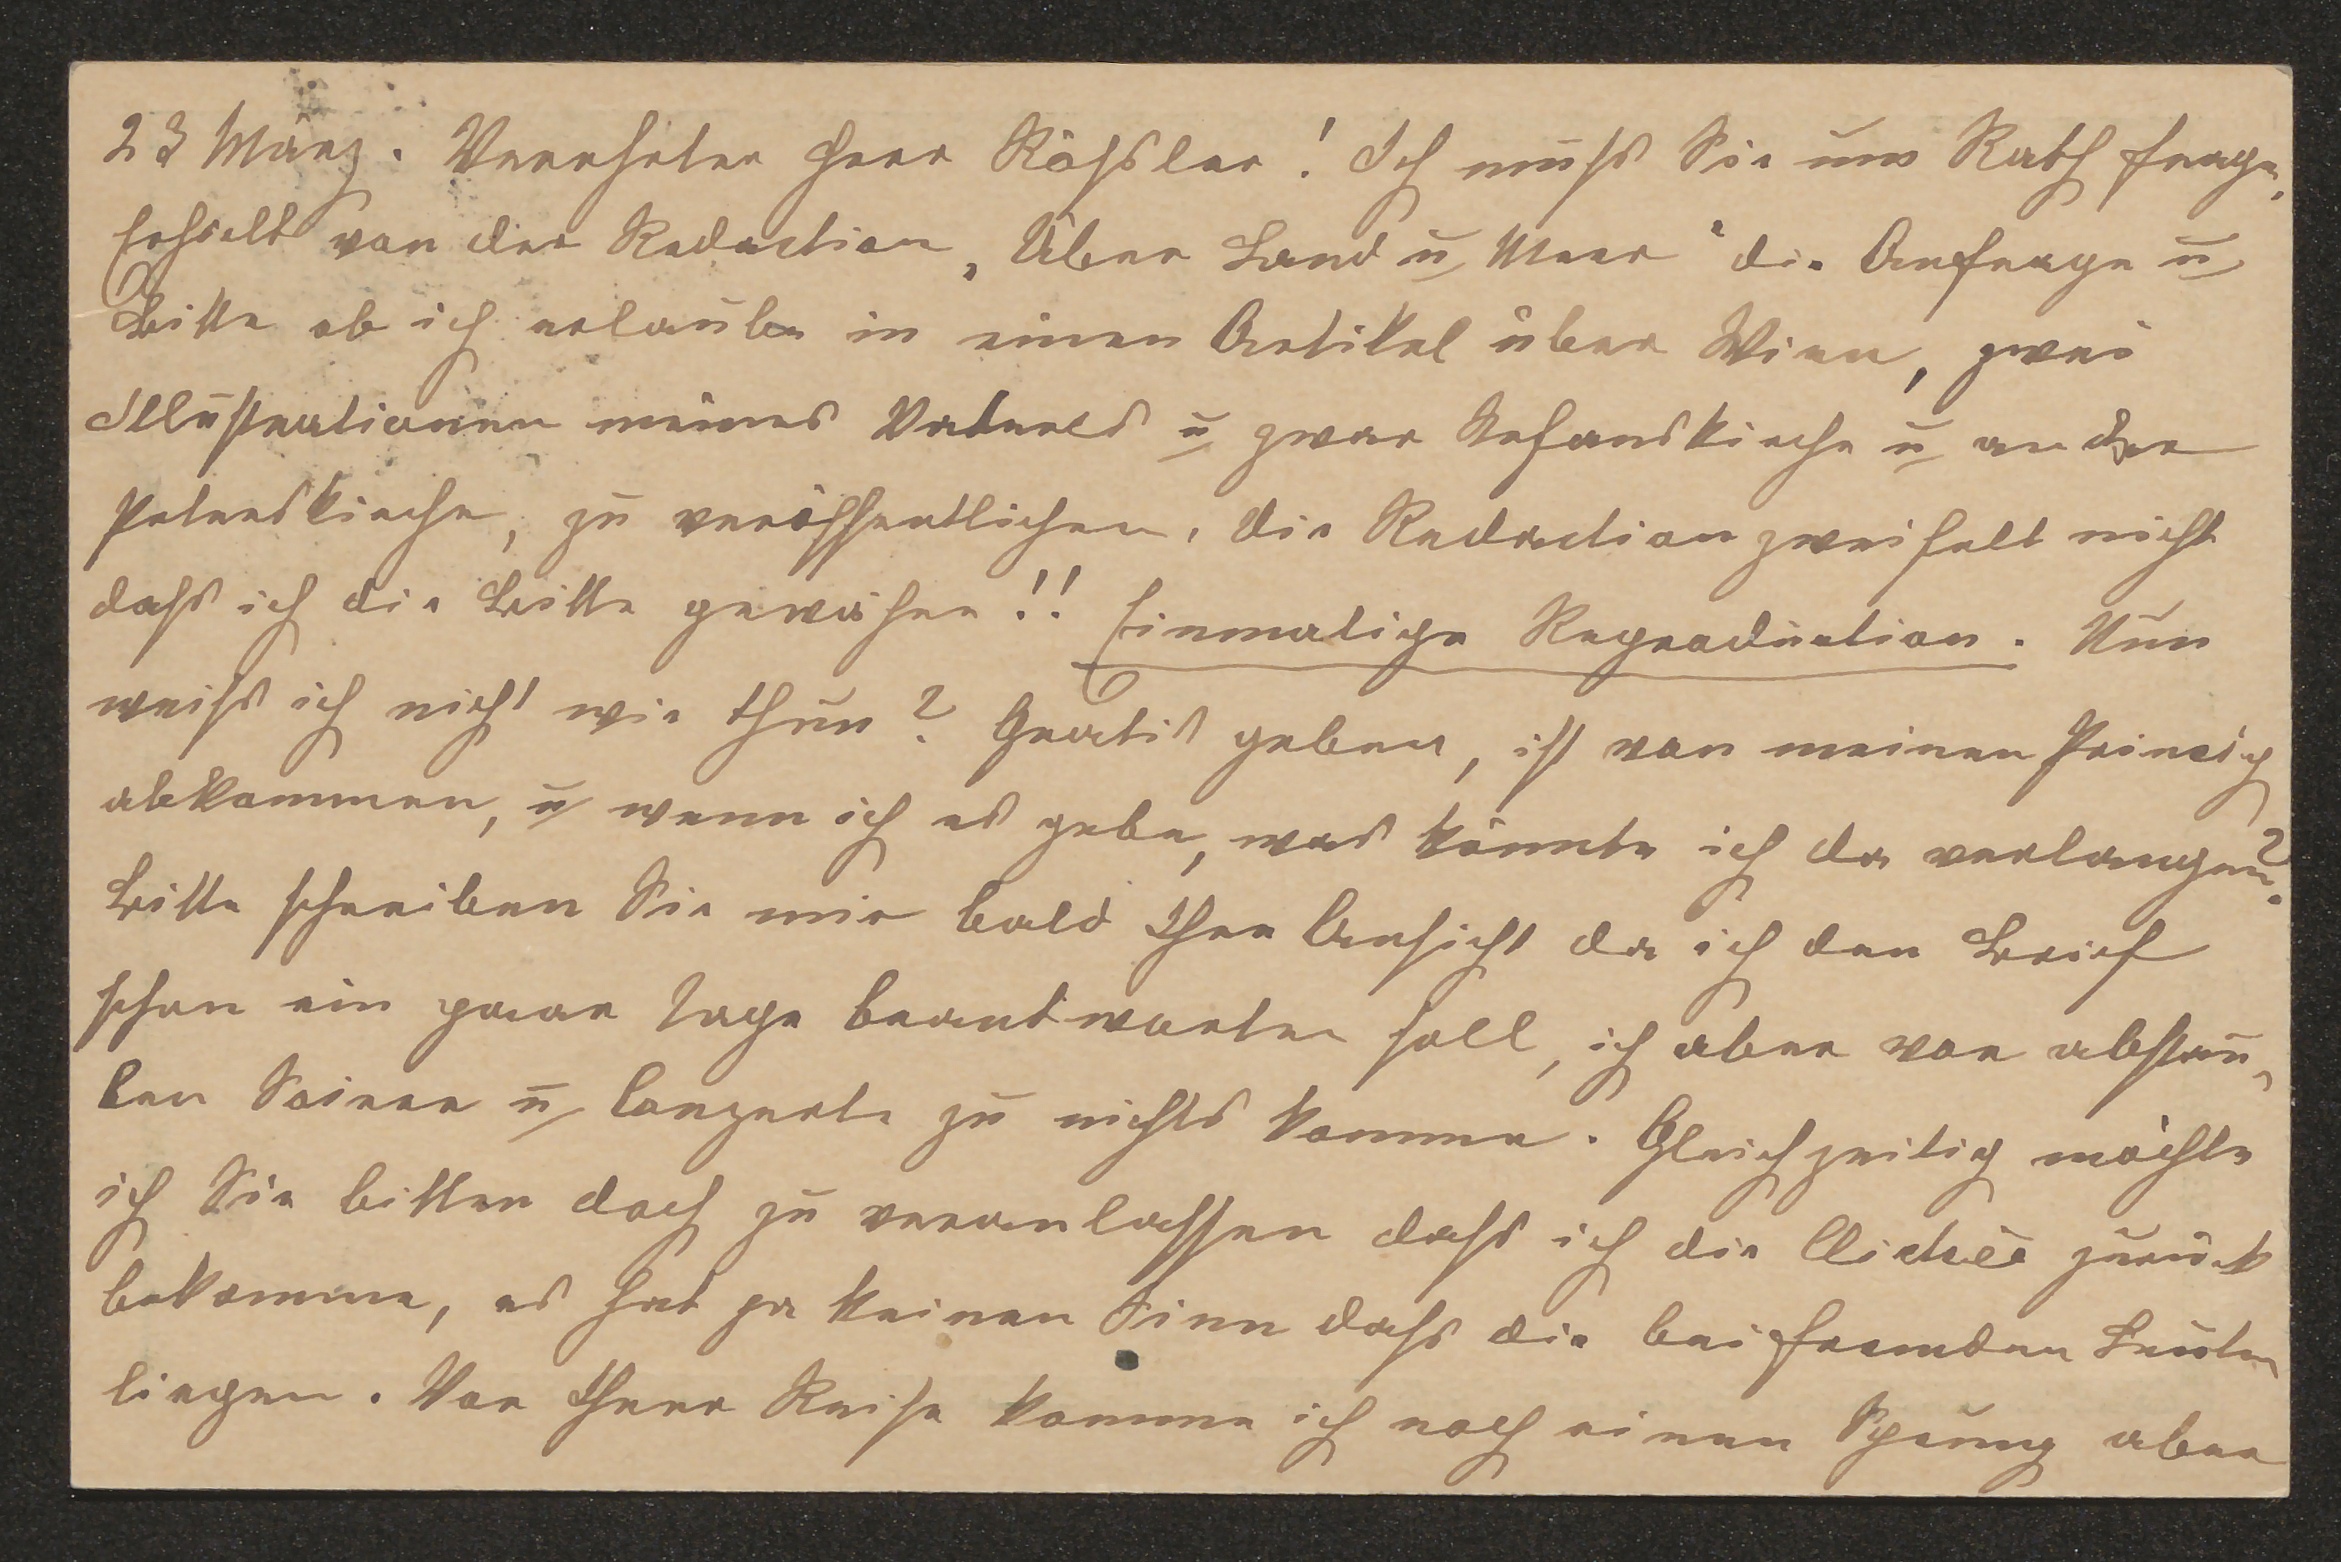 23 März. Verehrter Herr Rössler! Ich muss Sie um Rath fragen,
Erhielt von der Redaction „Über Land u Meer" die Anfrage u
Bitte ob ich erlaube in einen Artikel über Wien, zwei
Illustrationen meines Vaters u zwar Stefanskirche u an der
Peterskirche, zu veröffentlichen, die Redaction zweifelt nicht
dass ich die Bitte gewähre!! Einmalige Reproduction. Nun
weiss ich nicht wie thun? Gratis geben, ist von meinen Princip
abkommen, u wenn ich es gebe, was könnte ich da verlangen?
Bitte schreiben Sie mir bald Ihre Ansicht da ich den Brief
schon ein paar Tage beantworten soll, ich aber vor abstau-
ben Soiree u Conzerte zu nichts komme. Gleichzeitig möchte
ich Sie bitten doch zu veranlassen dass ich die Clichée zurück
bekomme, es hat ja keinen Sinn dass die bei fremden Leuten
liegen. Vor Ihrer Reise komme ich noch einen Sprung aber